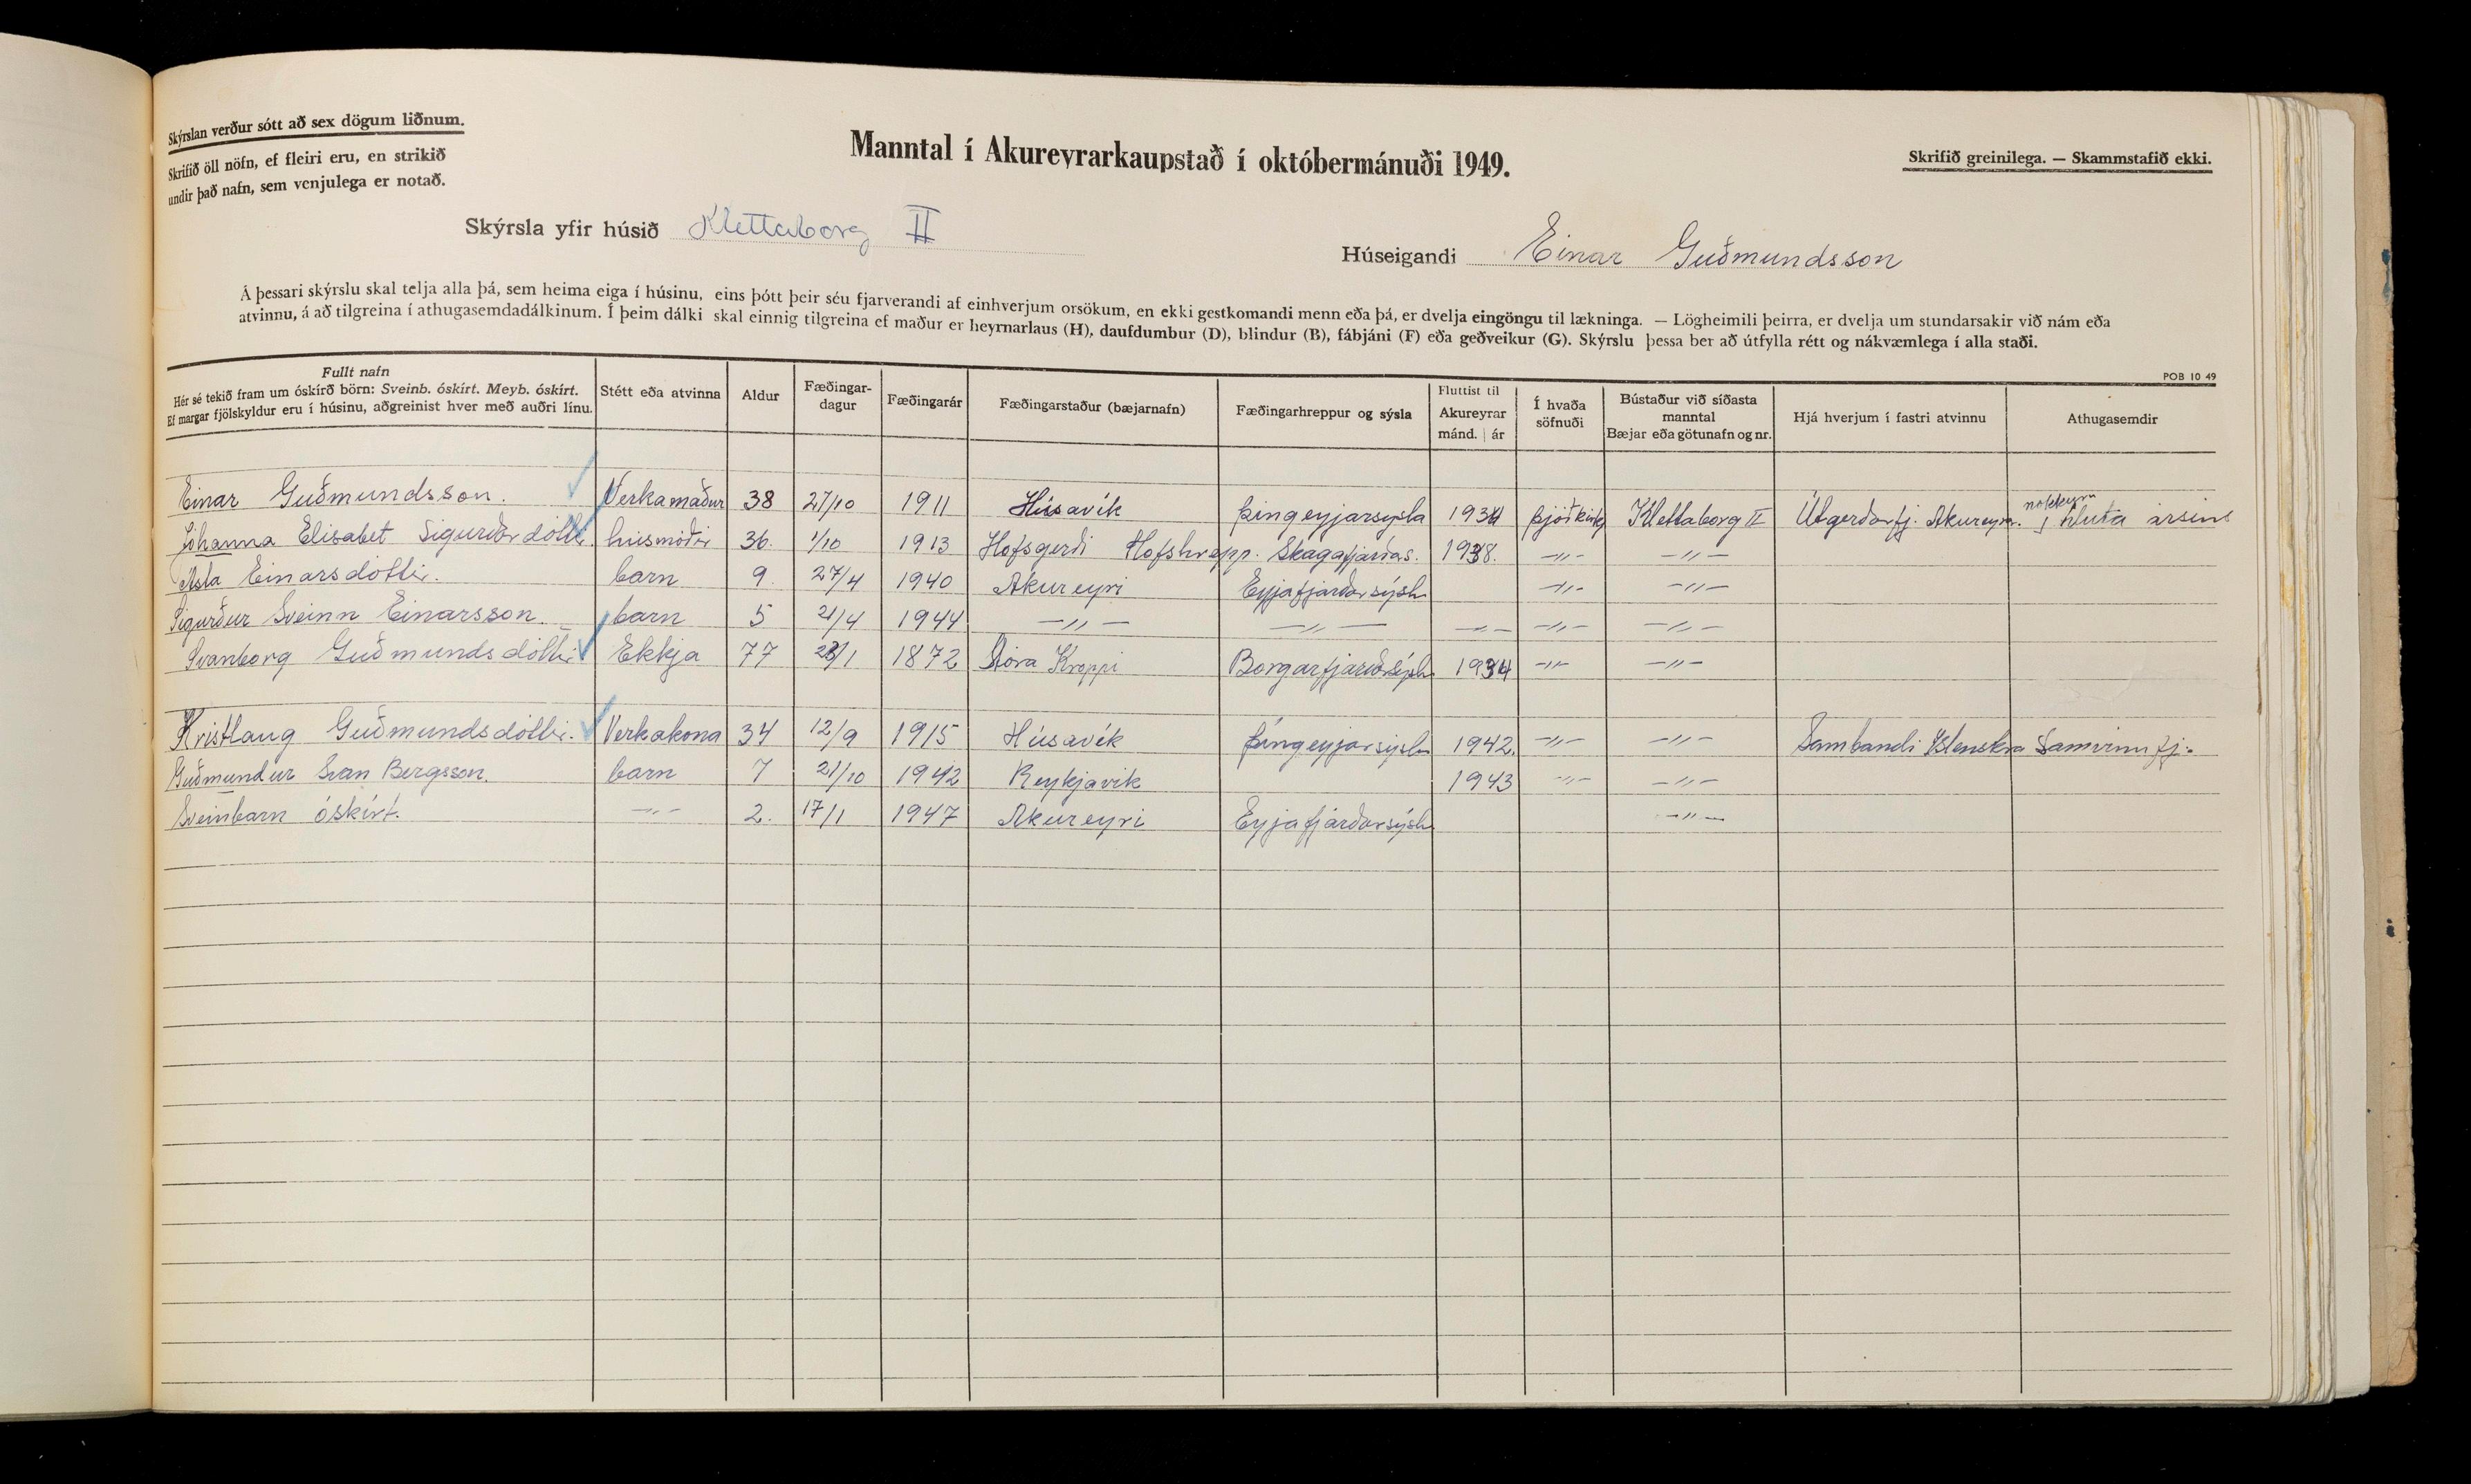 Skýrslan verður sótt að sex dögum liðnum.
Skrifið öll nöfn, ef fleiri eru, en strikið
undir það nafn, sem venjulega er notað.
Manntal í Akureyrarkaupstað í októbermánuði 1949.
Skrifið greinilega. — Skammstafið ekki.
Skýrsla yfir húsið Klettaborg II
Húseigandi Einar Guðmundsson
Á þessari skýrslu skal telja alla þá, sem heima eiga í húsinu, eins þótt þeir séu fjarverandi af einhverjum orsökum, en ekki gestkomandi menn eða þá, er dvelja eingöngu til lækninga. — Lögheimili þeirra, er dvelja um stundarsakir við nám eða
atvinnu, á að tilgreina í athugasemdadálkinum. Í þeim dálki skal einnig tilgreina ef maður er heyrnarlaus (H), daufdumbur (D), blindur (B), fábjáni (F) eða geðveikur (G). Skýrslu þessa ber að útfylla rétt og nákvæmlega í alla staði.
POB 10 49
Fullt nafn
Hér sé tekið fram um óskírð börn: Sveinb. óskírt. Meyb. óskírt.
Ef margar fjölskyldur eru í húsinu, aðgreinist hver með auðri línu.
Stétt eða atvinna
Aldur
Fæðingar-
dagur
Fæðingarár
Fæðingarstaður (bæjarnafn)
Fæðingarhreppur og sýsla
Fluttist til
Akureyrar
mánd. | ár
Í hvaða
söfnuði
Bústaður við síðasta
manntal
Bæjar eða götunafn og nr.
Hjá hverjum í fastri atvinnu
Athugasemdir
Einar Guðmundsson. Verkamaður 38 27/10 1911 Húsavík Þingeyjarsýsla 1934 Þjóðkirkj Klettaborg II Útgerðarfj. Akureyrar. nokkurn hluta ársins
Jóhanna Elisabet Sigurðardóttir húsmóðir 36. 1/10 1913 Hofsgerði Hofshrepp. Skagafjarðas. 1938. —〃— —〃—
Ásta Einarsdóttir. barn 9. 27/4 1940 Akureyri Eyjafjarðarsýsla —〃— —〃—
Sigurður Sveinn Einarsson. barn 5 21/4 1944 —〃— —〃— —〃— —〃— —〃—
Svanborg Guðmundsdóttir Ekkja 77 28/1 1872 Stóra Kroppi Borgarfjarðarsýsla 1934 —〃— —〃—
Kristlaug Guðmundsdóttir. Verkakona 34 12/9 1915 Húsavík Þingeyjarsýsla 1942. —〃— —〃— Sambandi Íslenskra Samvinnufj.
Guðmundur Svan Bergsson. barn 7 21/10 1942 Reykjavík 1943 —〃— —〃—
Sveinbarn óskírt. —〃— 2. 17/1 1947 Akureyri Eyjafjarðarsýsla —〃—